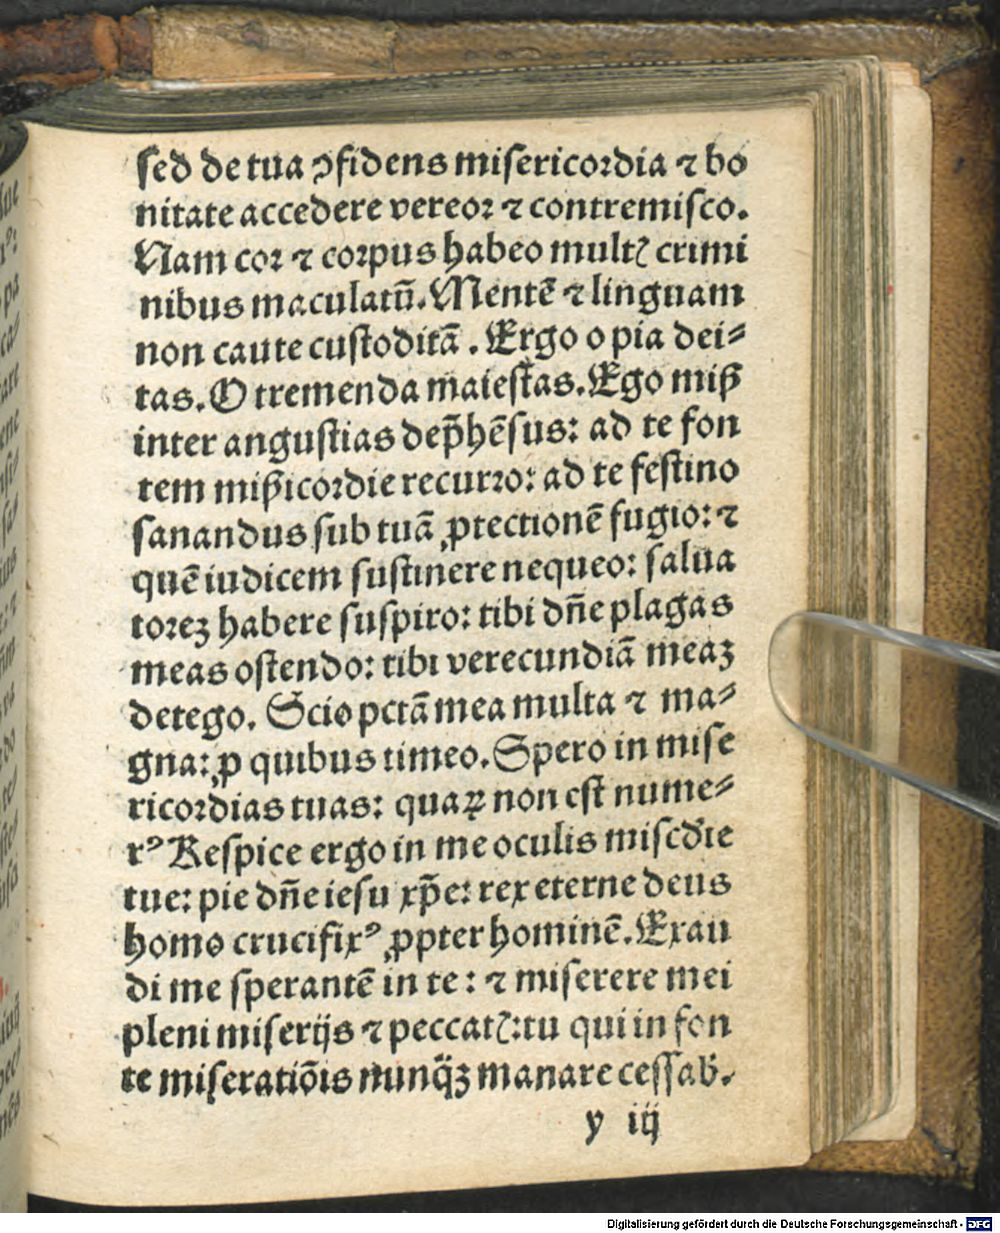 sed de tua ꝯfidens misericordia ⁊ bo
nitate accedere vereor ⁊ contremisco.
Nam cor ⁊ corpus habeo multꝭ crimi
nibus maculatū. Mentē ⁊ linguam
non caute custoditā. Ergo o pia dei⸗
tas. O tremenda maiestas. Ego miẞ
inter angustias dep̄hēsus: ad te fon
tem miẞicordie recurro: ad te festino
sanandus sub tuā ꝓtectionē fugio: ⁊
quē iudicem sustinere nequeo: salua
torēꝫ habere suspiro: tibi dn̄e plagas
meas ostendo: tibi verecundiā meaꝫ
detego. Scio pctā mea multa ⁊ ma⸗
gna: ꝓ quibus timeo. Spero in mise
ricordias tuas: quaꝝ non est nume⸗
rꝰ Respice ergo in me oculis miscdie
tue: pie dn̄e iesu xp̄e: rex eterne deus
homo crucifixꝰ ꝓpter hominē. Exau
di me sperantē in te: ⁊ miserere mei
pleni miserijs ⁊ peccatꝭ: tu qui in fon
te miseratiōis nunq̄ꝫ manare cessab̓.
y iij
Digitalisierung gefördert durch die Deutsche Forschungsgemeinschaft - DFG